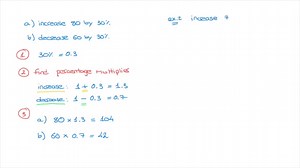 a) increase 80 by 30%
b) decrease 60 by 30%
1 30% = 0.3
2 find percentage multiplier
increase: 1 + 0.3 = 1.3
decrease: 1 - 0.3 = 0.7
3 a) 80 × 1.3 = 104
b) 60 × 0.7 = 42
ex.1 increase